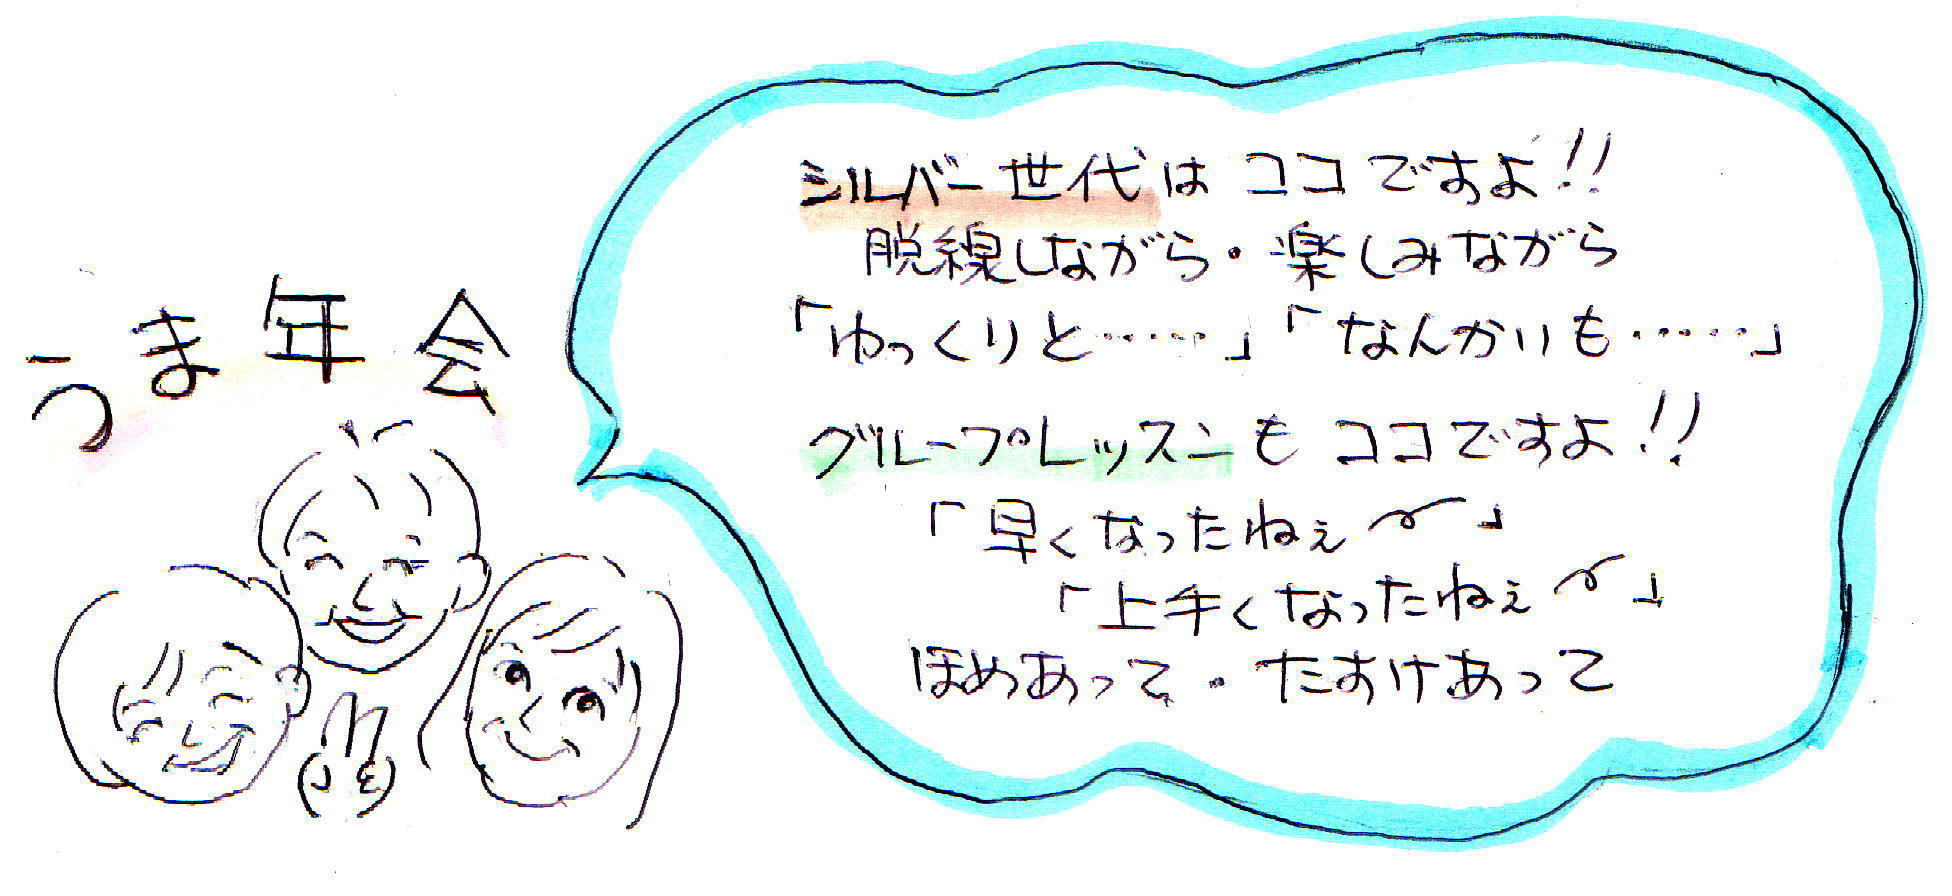 うま年会
シルバー世代はココですよ!!
脱線しながら・楽しみながら
「ゆっくりと……」「なんかいも……」
グループレッスンもココですよ!!
「早くなったねぇ〜」
「上手くなったねぇ〜」
ほめあって・たすけあって